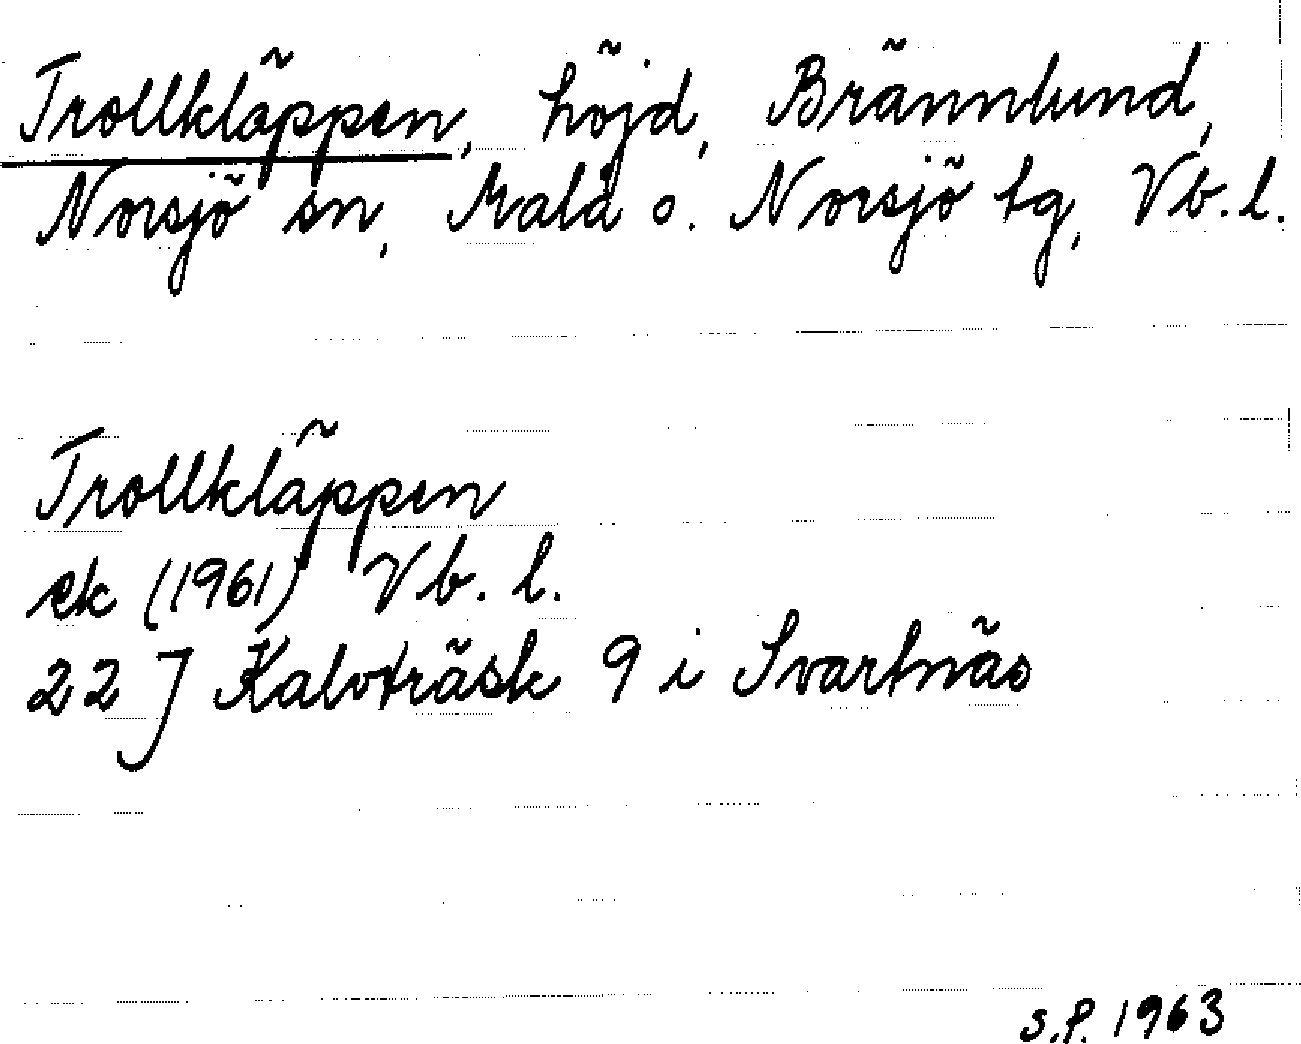 Trollkläppen, höjd, Brännlund,
Norsjö sn, Malå o. Norsjö tg, Vb. l.
Trollkläppen
ek (1961) Vb. l.
22 J Kalvträsk 9 i Svartnäs
S.P. 1963